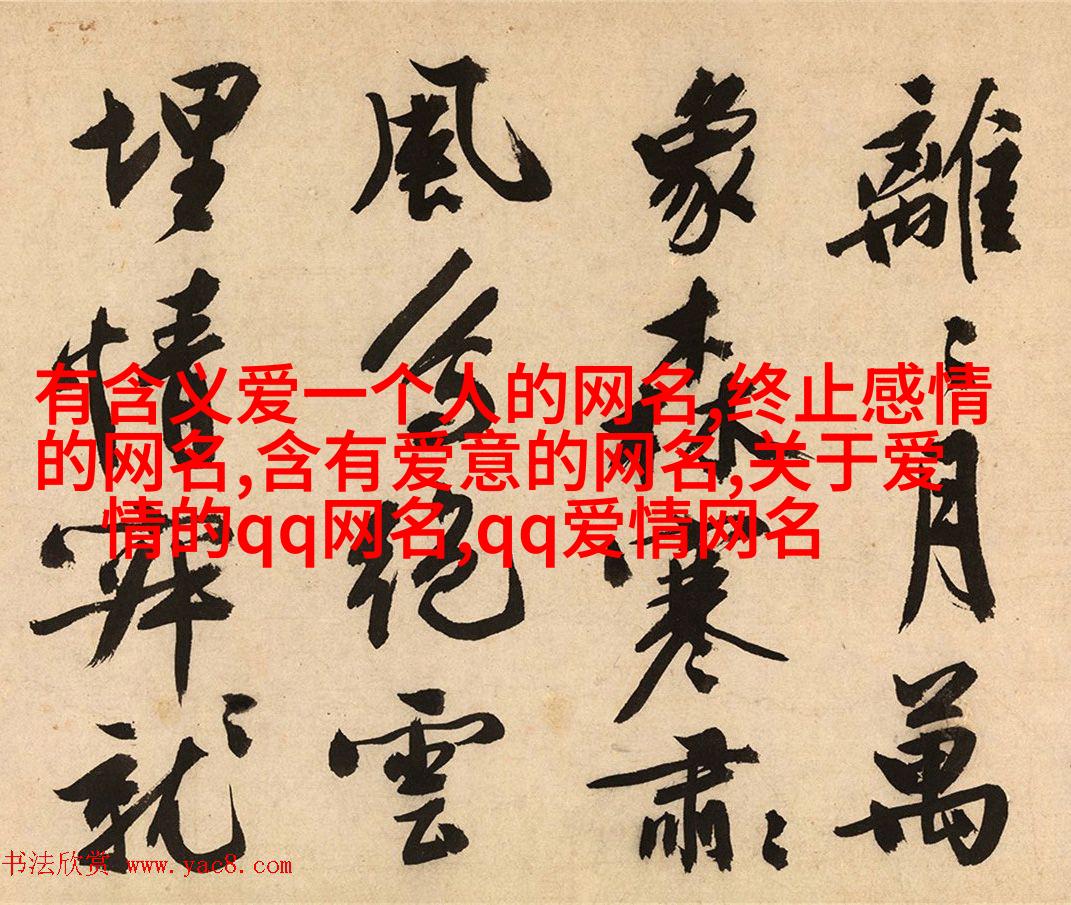 離〻月萬
象森寒肅〻
風絕雲
埋情就〻
有含义爱一个人的网名,终止感情
的网名,含有爱意的网名,关于爱
情的qq网名,qq爱情网名
书法欣赏 www.yac8.com